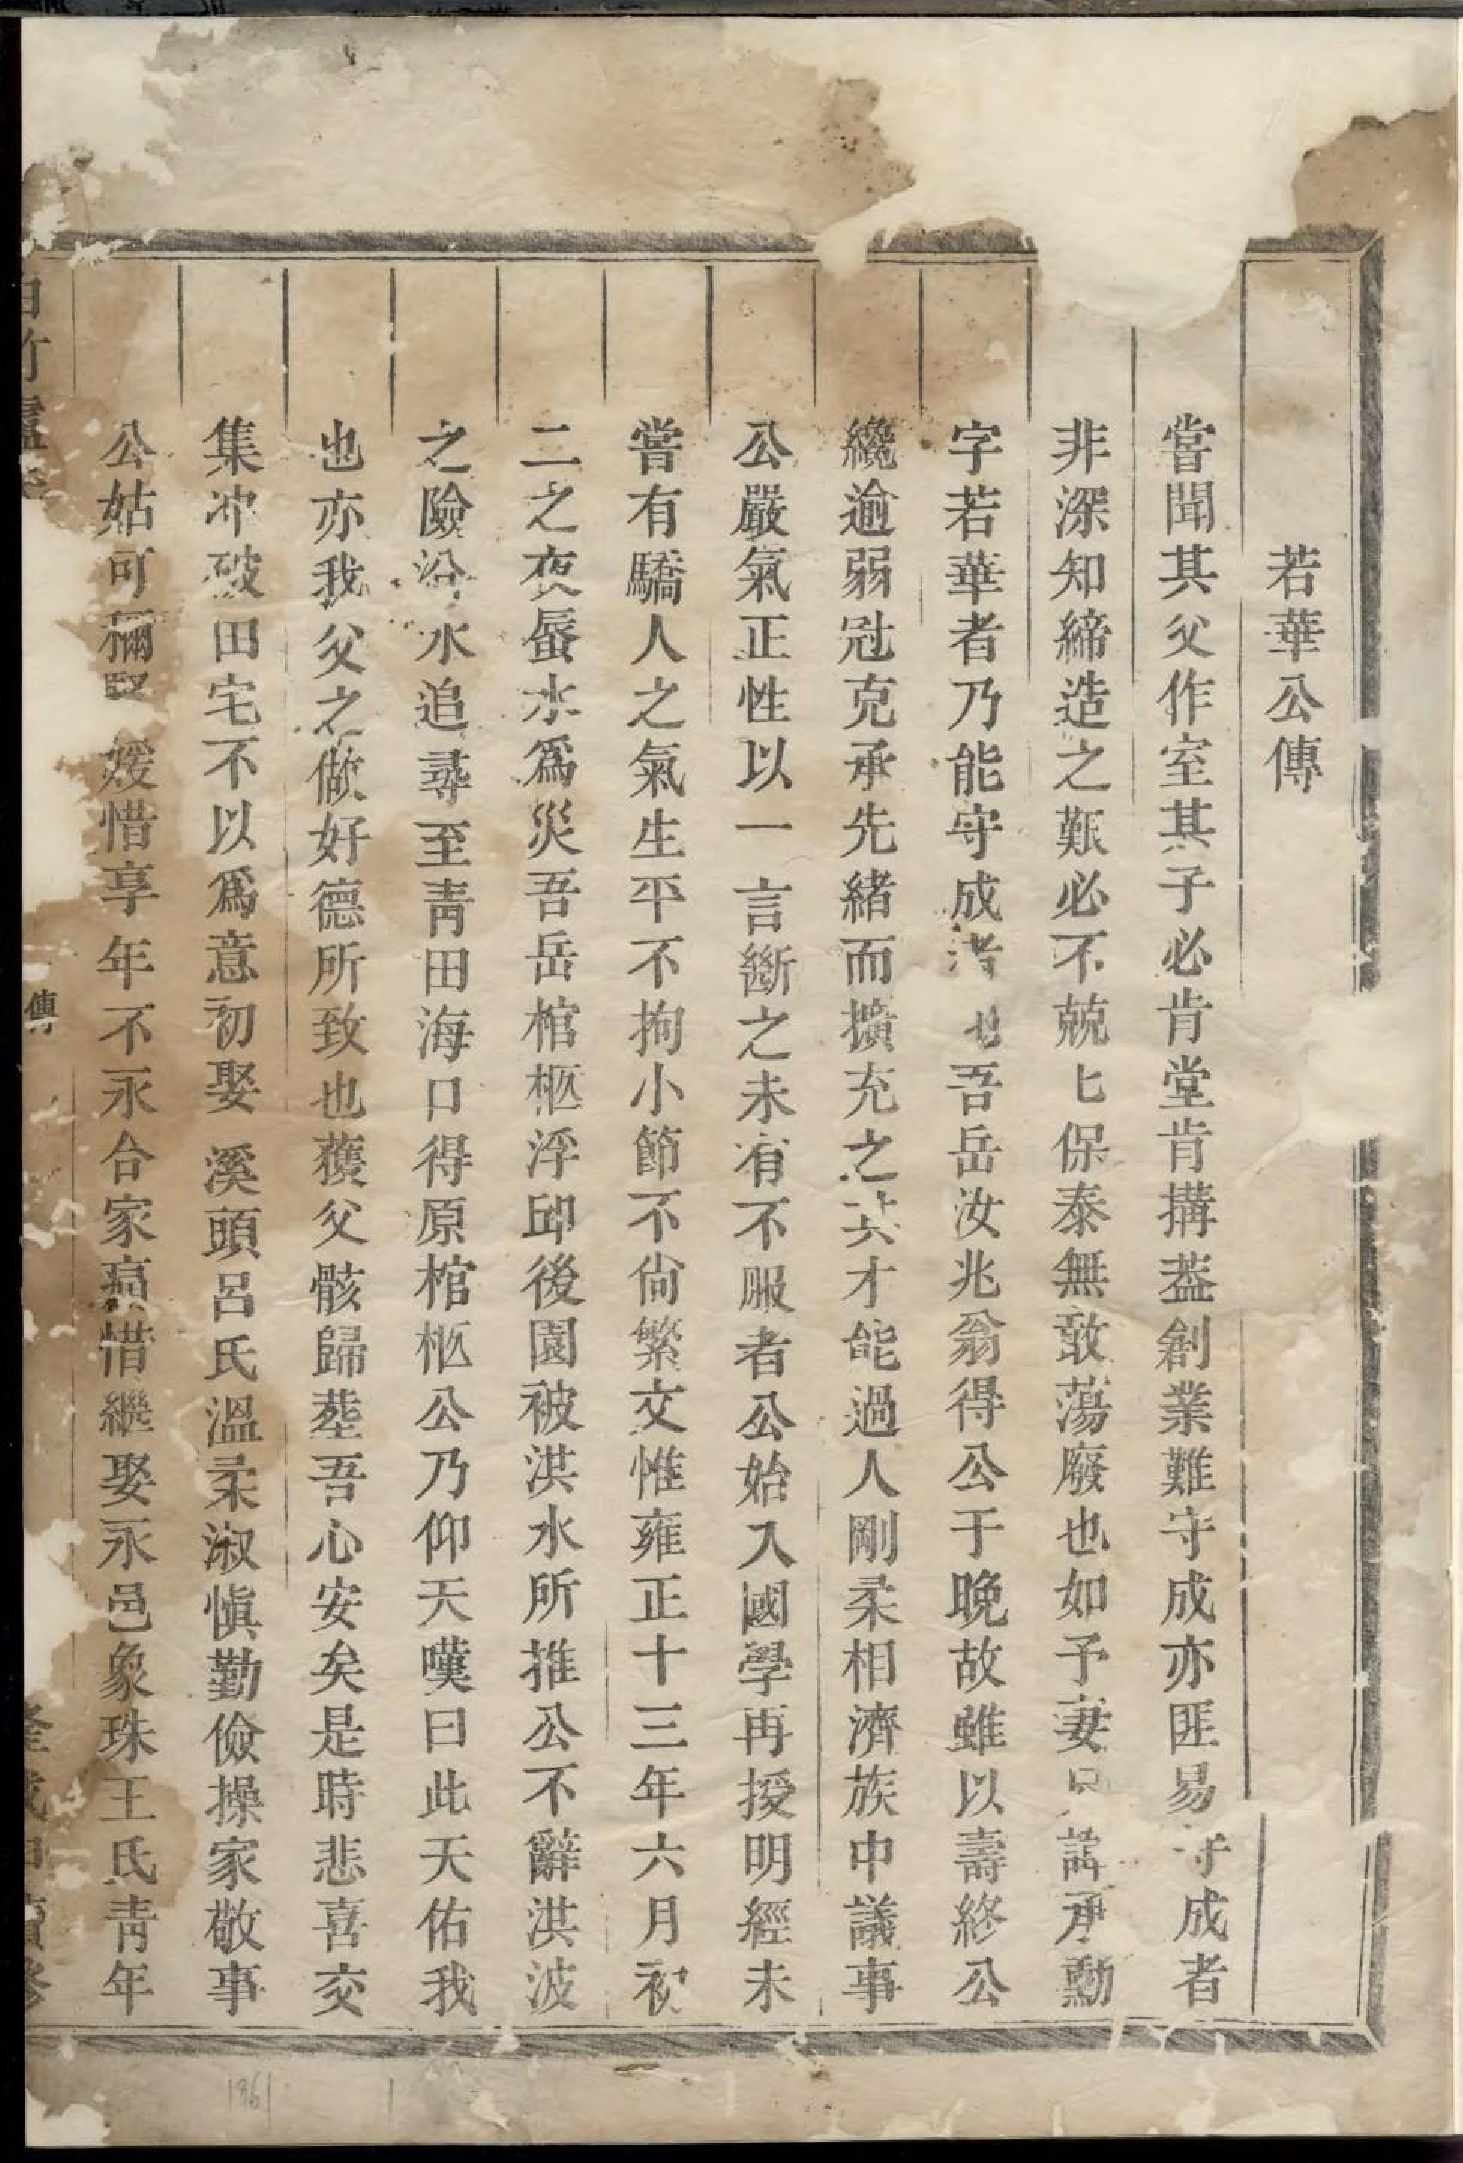 若華公傳
嘗聞其父作室其子必肯堂肯搆葢創業難守成亦匪易守成者
非深知締造之艱必不兢匕保泰無敢蕩廢也如予妻兄諱承勳
字若華者乃能守成者也吾岳汝兆翁得公于晚故雖以壽終公
纔逾弱冠克承先緒而擴充之其才能過人剛柔相濟族中議事
公嚴氣正性以一言斷之未有不服者公始入國學再授明經未
嘗有驕人之氣生平不拘小節不尙繁文惟雍正十三年六月初
二之夜蜃水爲災吾岳棺柩浮邱後園被洪水所推公不辭洪波
之險沿水追尋至靑田海口得原棺柩公乃仰天嘆曰此天佑我
也亦我父之做好德所致也獲父骸歸塟吾心安矣是時悲喜交
集冲破田宅不以爲意初娶溪頭呂氏溫柔淑愼勤儉操家敬事
公姑可稱賢媛惜享年不永合家哀惜繼娶永邑象珠王氏靑年
傳